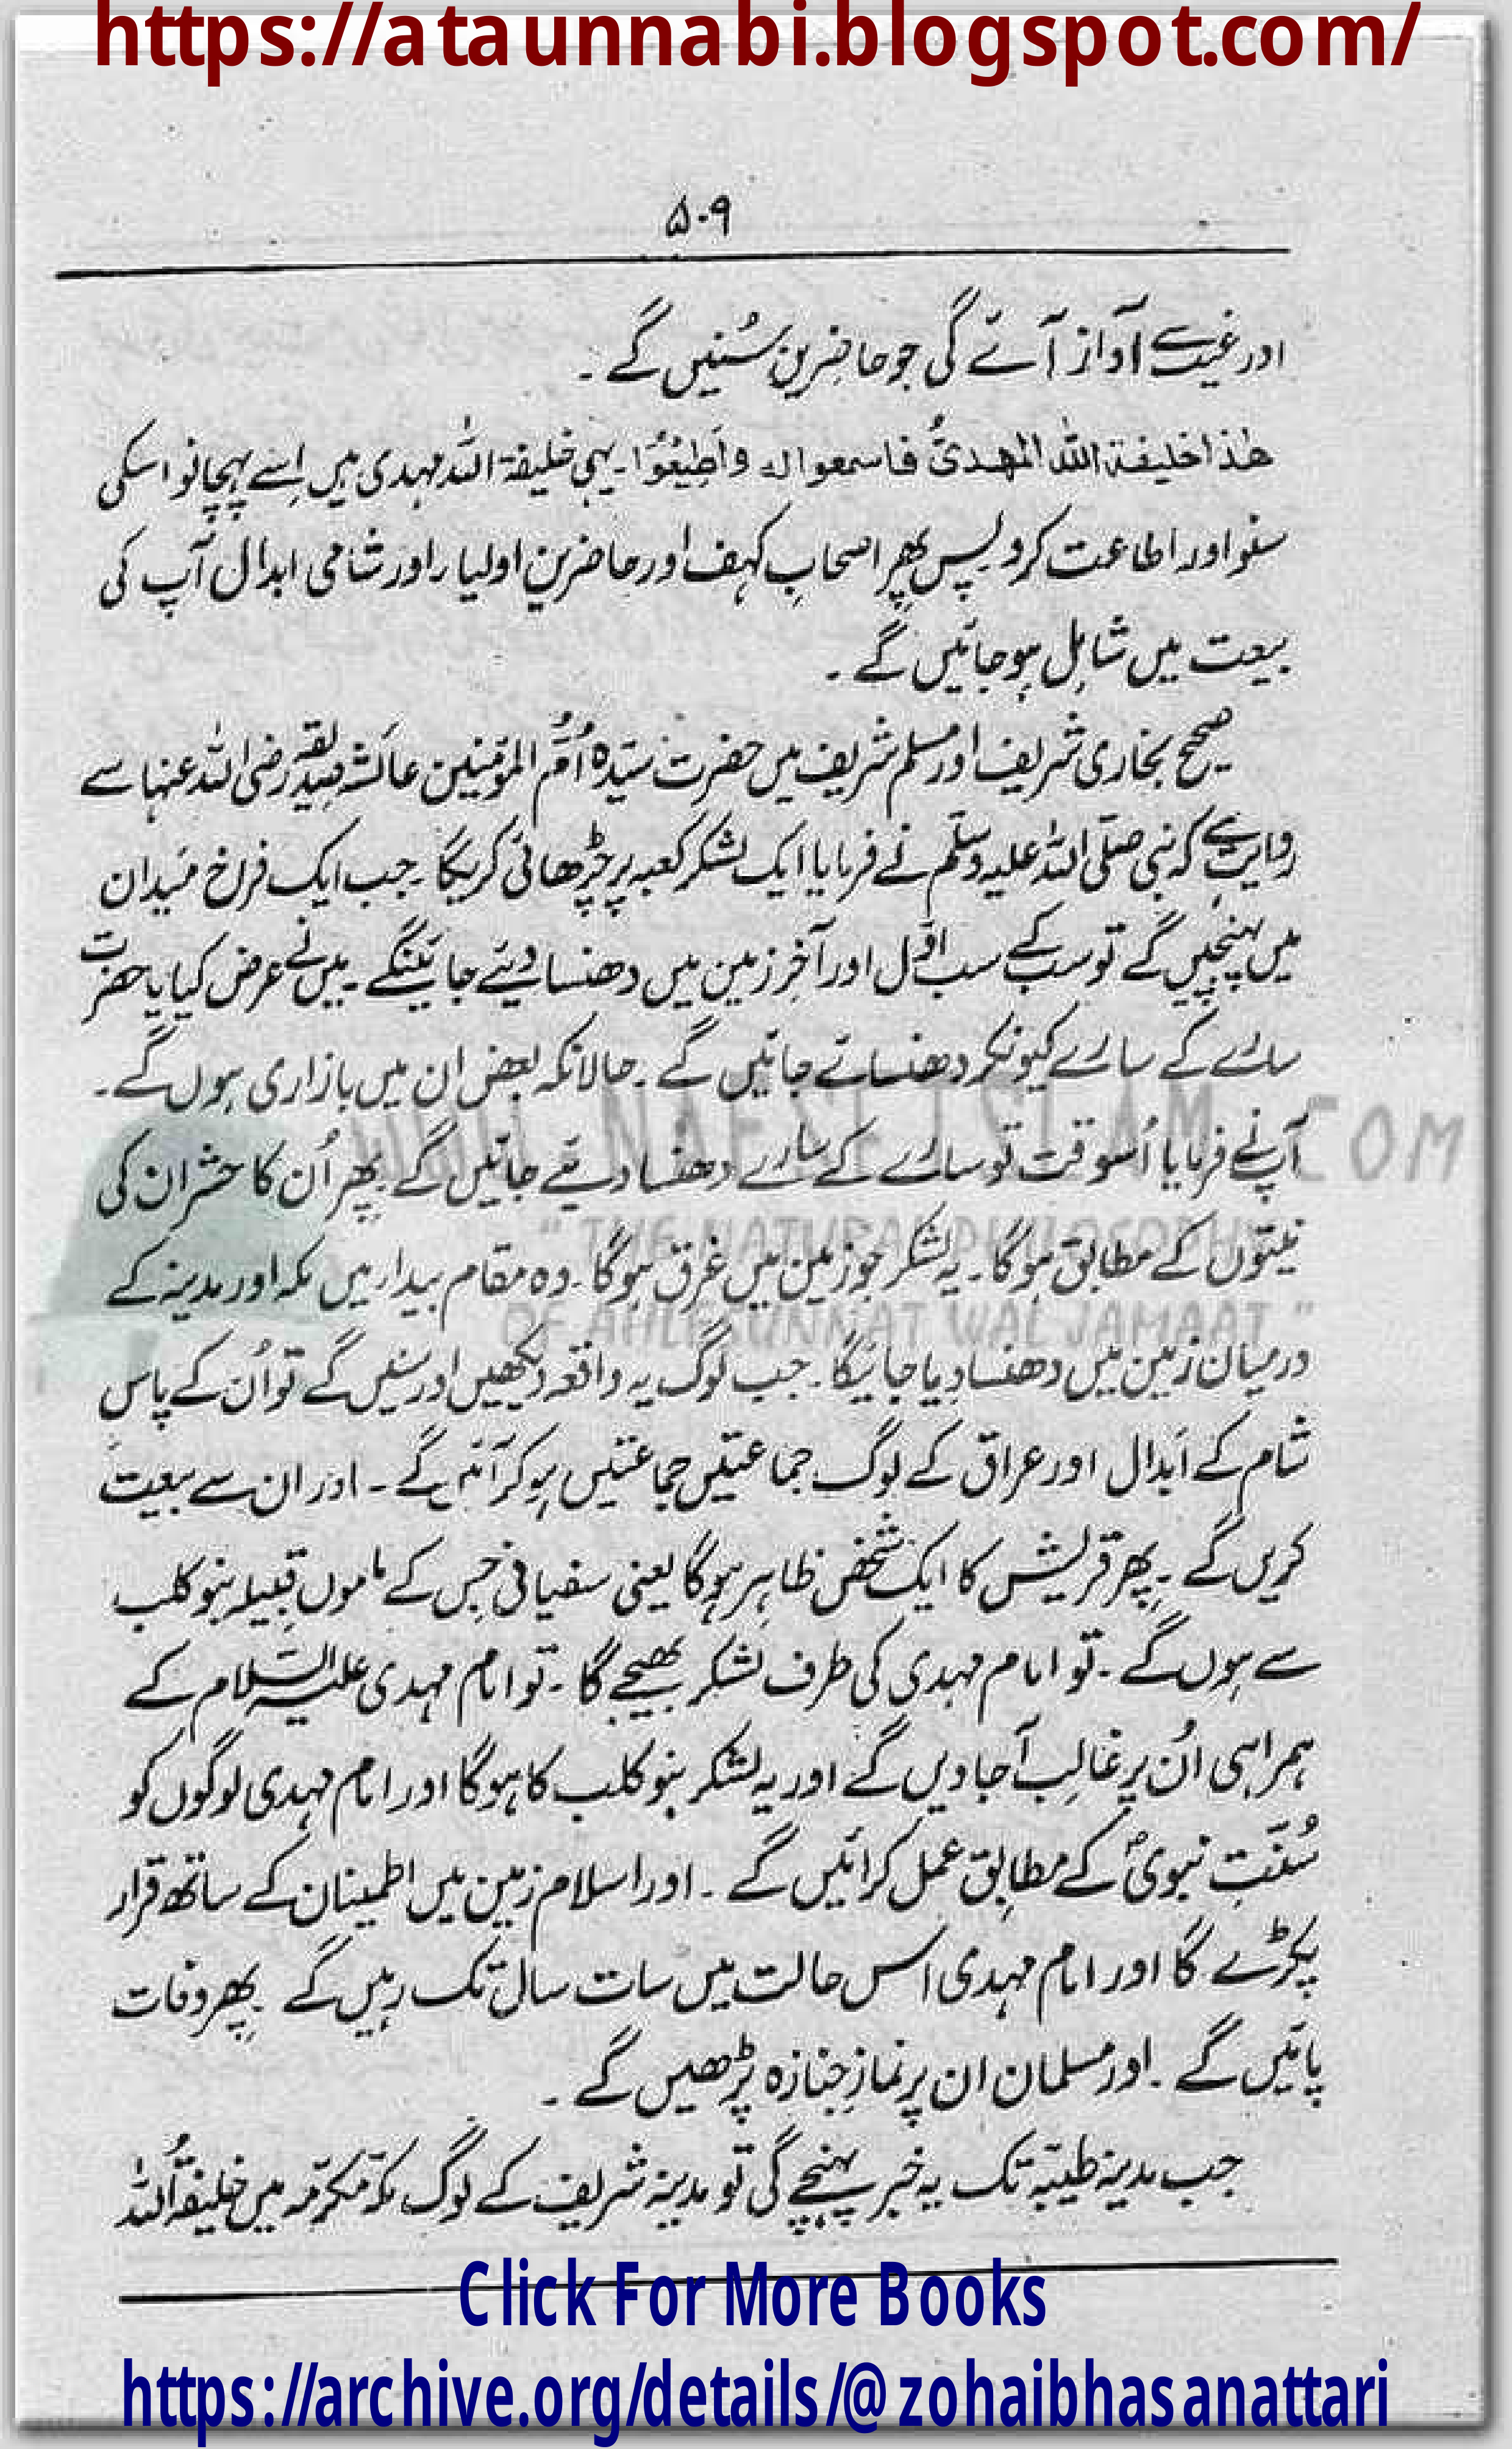 https://ataunnabi.blogspot.com/
۵۰۹
اور غیب سے آواز آئے گی جو حاضرین سُنیں گے ۔
ھٰذا خلیفۃ اللہ المھدیُّ فاسمعوا لہ واَطِیْعُوْا ۔ یہی خلیفۃ اللہ مہدی ہیں اِسے پہچانو اسکی
سنو اور اطاعت کرو پس پھر اصحابِ کہف اور حاضرین اولیاء اور شامی ابدال آپ کی
بیعت میں شامِل ہو جائیں گے ۔
صحیح بخاری شریف اور مسلم شریف میں حضرت سیّدہ اُمُّ المؤمنین عائشہ صدیقہ رضی اللہ عنہا سے
روایت ہے کہ نبی صلّی اللہ علیہ وسلّم نے فرمایا ایک لشکر کعبہ پر چڑھائی کریگا ۔ جب ایک فراخ میدان
میں پہنچیں گے تو سب کے سب اوّل اور آخر زمین میں دھنسا دیئے جائینگے ۔ میں نے عرض کیا یا حضرت
سارے کے سارے کیونکر دھنسائے جائیں گے ۔ حالانکہ بعض ان میں بازاری ہوں گے ۔
WWW.NAFSEISLAM.COM
آپ نے فرمایا اُسوقت تو سارے کے سارے دھنسا دیئے جائیں گے ۔ پھر اُن کا حشر ان کی
"THE NATURAL PHILOSOPHY
نیتوں کے مطابق ہو گا ۔ یہ لشکر جو زمین میں غرق ہو گا ۔ وہ مقام بیداء میں مکہ اور مدینہ کے
OF AHLESUNNAT WAL JAMAAT"
درمیان زمین میں دھنسا دیا جائیگا ۔ جب لوگ یہ واقعہ دیکھیں اور سُنیں گے تو اُن کے پاس
شام کے اَبدال اور عراق کے لوگ جماعتیں جماعتیں ہو کر آئیں گے ۔ اور ان سے بیعت
کریں گے ۔ پھر قریش کا ایک شخص ظاہر ہو گا یعنی سفیانی جس کے ماموں قبیلہ بنو کلب
سے ہوں گے ۔ تو امام مہدی کی طرف لشکر بھیجے گا ۔ تو امام مہدی علیہ السّلام کے
ہمراہی اُن پر غالب آجاویں گے اور یہ لشکر بنو کلب کا ہو گا اور امام مہدی لوگوں کو
سُنّتِ نبویؐ کے مطابق عمل کرائیں گے ۔ اور اسلام زمین میں اطمینان کے ساتھ قرار
پکڑے گا اور امام مہدی اس حالت میں سات سال تک رہیں گے ۔ پھر وفات
پائیں گے ۔ اور مسلمان ان پر نمازِ جنازہ پڑھیں گے ۔
جب مدینہ طیبّہ تک یہ خبر پہنچے گی تو مدینہ شریف کے لوگ مکّہ مکرّمہ میں خلیفۃُ اللہ
Click For More Books
https://archive.org/details/@zohaibhasanattari